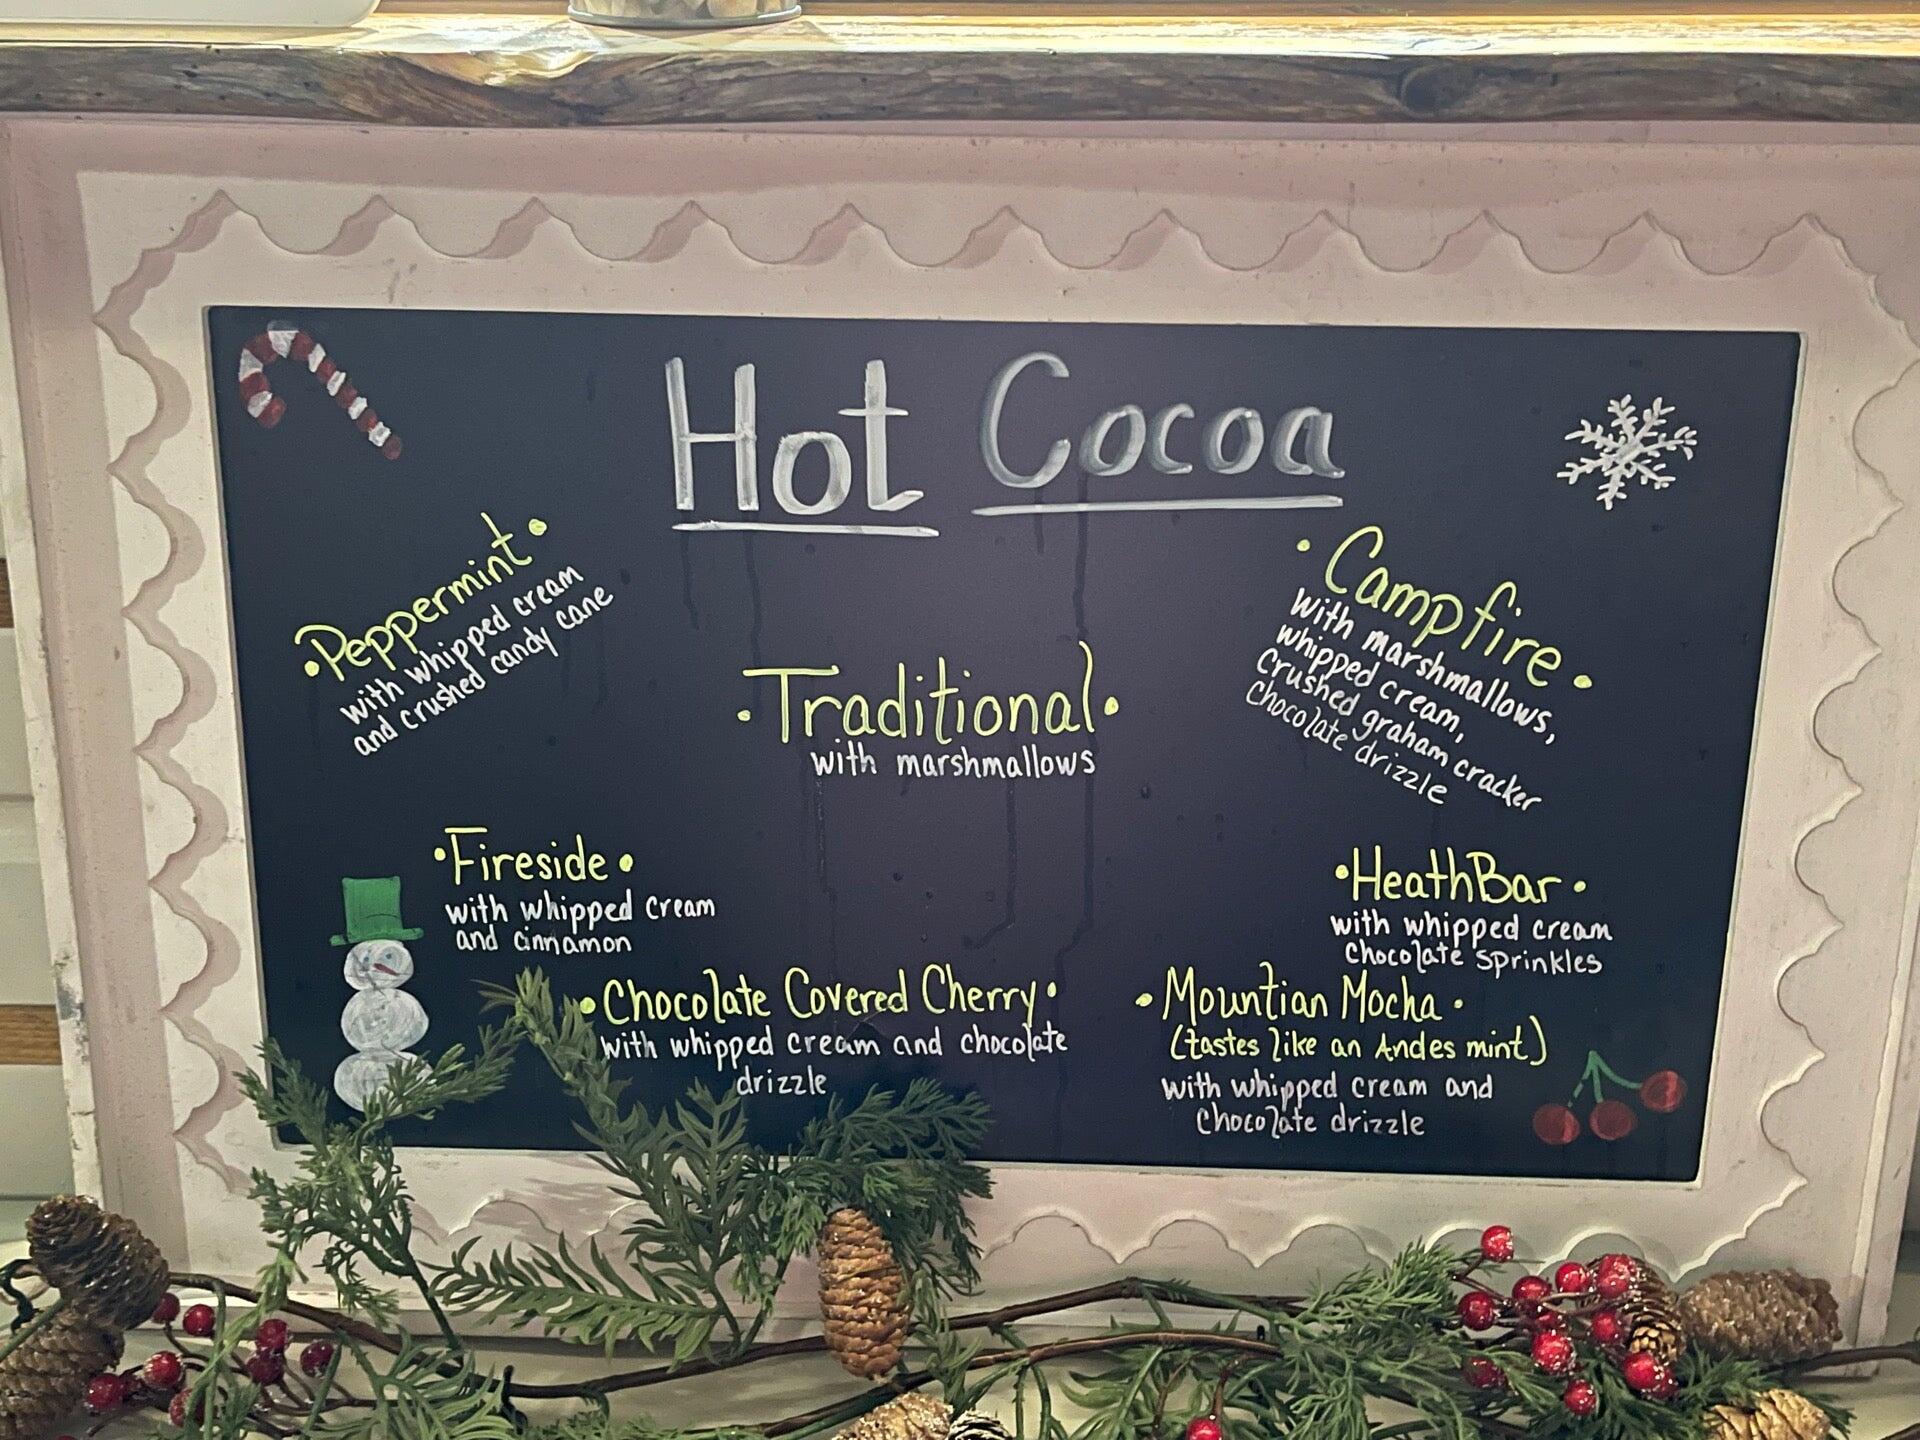 Hot Cocoa
• Peppermint •
with whipped cream
and crushed candy cane
• Campfire •
with marshmallows,
whipped cream,
crushed graham cracker
chocolate drizzle
• Traditional •
with marshmallows
• Fireside •
with whipped cream
and cinnamon
• HeathBar •
with whipped cream
chocolate sprinkles
• Chocolate Covered Cherry •
with whipped cream and chocolate
drizzle
• Mountian Mocha •
(tastes like an Andes mint)
with whipped cream and
chocolate drizzle